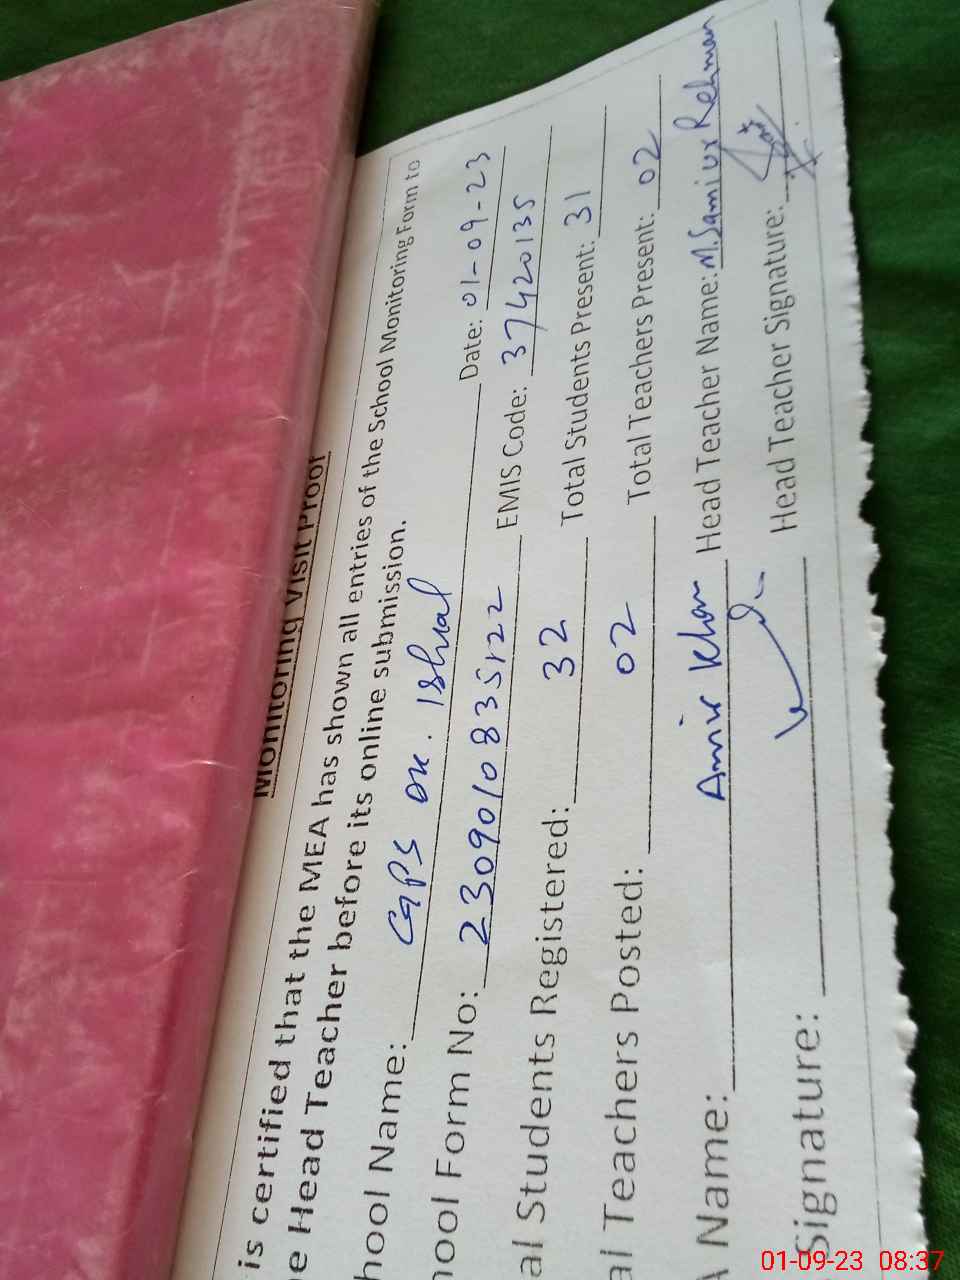 Monitoring Visit Proof
is certified that the MEA has shown all entries of the School Monitoring Form to
e Head Teacher before its online submission.
hool Name: GGPS DK. Ishral Date: 01-09-23
hool Form No: 2309010835122 EMIS Code: 37420135
al Students Registered: 32 Total Students Present: 31
al Teachers Posted: 02 Total Teachers Present: 02
A Name: Amir Khan Head Teacher Name: M. Sami ur Rehman
Signature: Head Teacher Signature:
01-09-23 08:37